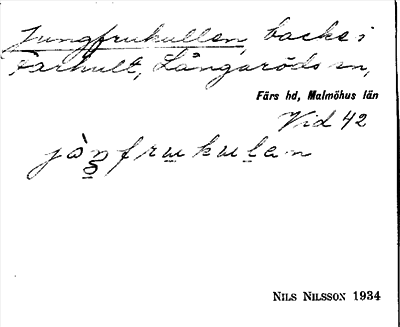 Jungfrukullen, backe i
Farhult, Långaröds sn,
Färs hd, Malmöhus län
Vid 42
jòn̥frukulen
NILS NILSSON 1934